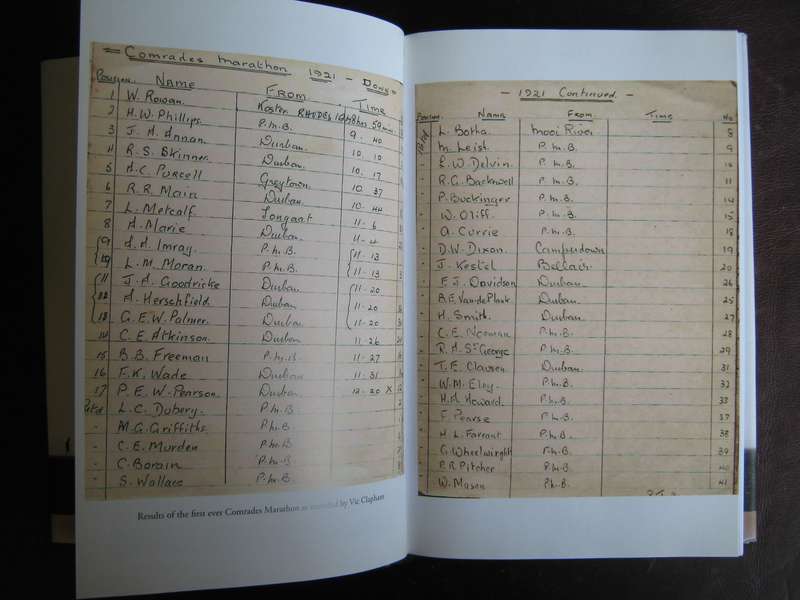 = Comrades Marathon 1921 - Down =
Position NAME FROM Time
1 W. Rowan. Koster RHODESIA 8hrs 59 min
2 H.W. Phillips. P.M.B. 9. 40
3 J. A. Annan. Durban. 10. 10
4 R. S. Skinner. Durban. 10. 17
5 A.C. Purcell Greytown. 10. 37
6 R.R. Main Durban. 10. 44
7 L. Metcalf. 11 - 6
8 A. Marie Durban. 11-4
9 A.A. Imray. P.M.B. 11-13
10 L. M. Moran. P.M.B. 11-13
11 J. A. Goodricke Durban 11-20
12 A. Herschfield. Durban 11-20
13 G. E. W. Palmer. Durban. 11-20
14 C. E. Atkinson. Durban 11-26
15 B.B. Freeman P.M.B. 11-27
16 F.K. Wade Durban 11-31
17 P. E. W. Pearson. Durban 12-20 X
L.C. Dubery. P.M.B.
- M.G. Griffiths P.M.B.
- C.E. Murden P.M.B.
- C. Borain P.M.B.
- S. Wallace P.M.B.
Results of the first ever Comrades Marathon as recorded by Vic Clapham
- 1921 Continued. -
Position Name From Time No
L. Botha Mooi River 8
M. Leist. P.M.B. 9
- E. W. Delvin P.M.B. 10
- R.G. Backwell P.M.B. 11
- P. Buckinger P.M.B. 14
- W. Oliff P.M.B. 15
- A. Currie P.M.B. 18
- D.W. Dixon Camperdown 19
- J. Kestel Bellair 20
- E.J. Davidson Durban 26
- A.E. Van de Plank Durban. 25
- H. Smith. Durban 27
- C. E. Norman P.M.B. 28
- R. A. St George P.M.B. 29
- T. E. Clausen Durban 31
- W.M. Eloy. P.M.B.
- H.A. Howard. P.M.B.
- F. Pearse P.M.B. 37
- H L. Farrant P.M.B. 38
- G. Wheelwright P.M.B. 39
- P.R. Pitcher P.M.B. 40
- W. Mason P.M.B. 41